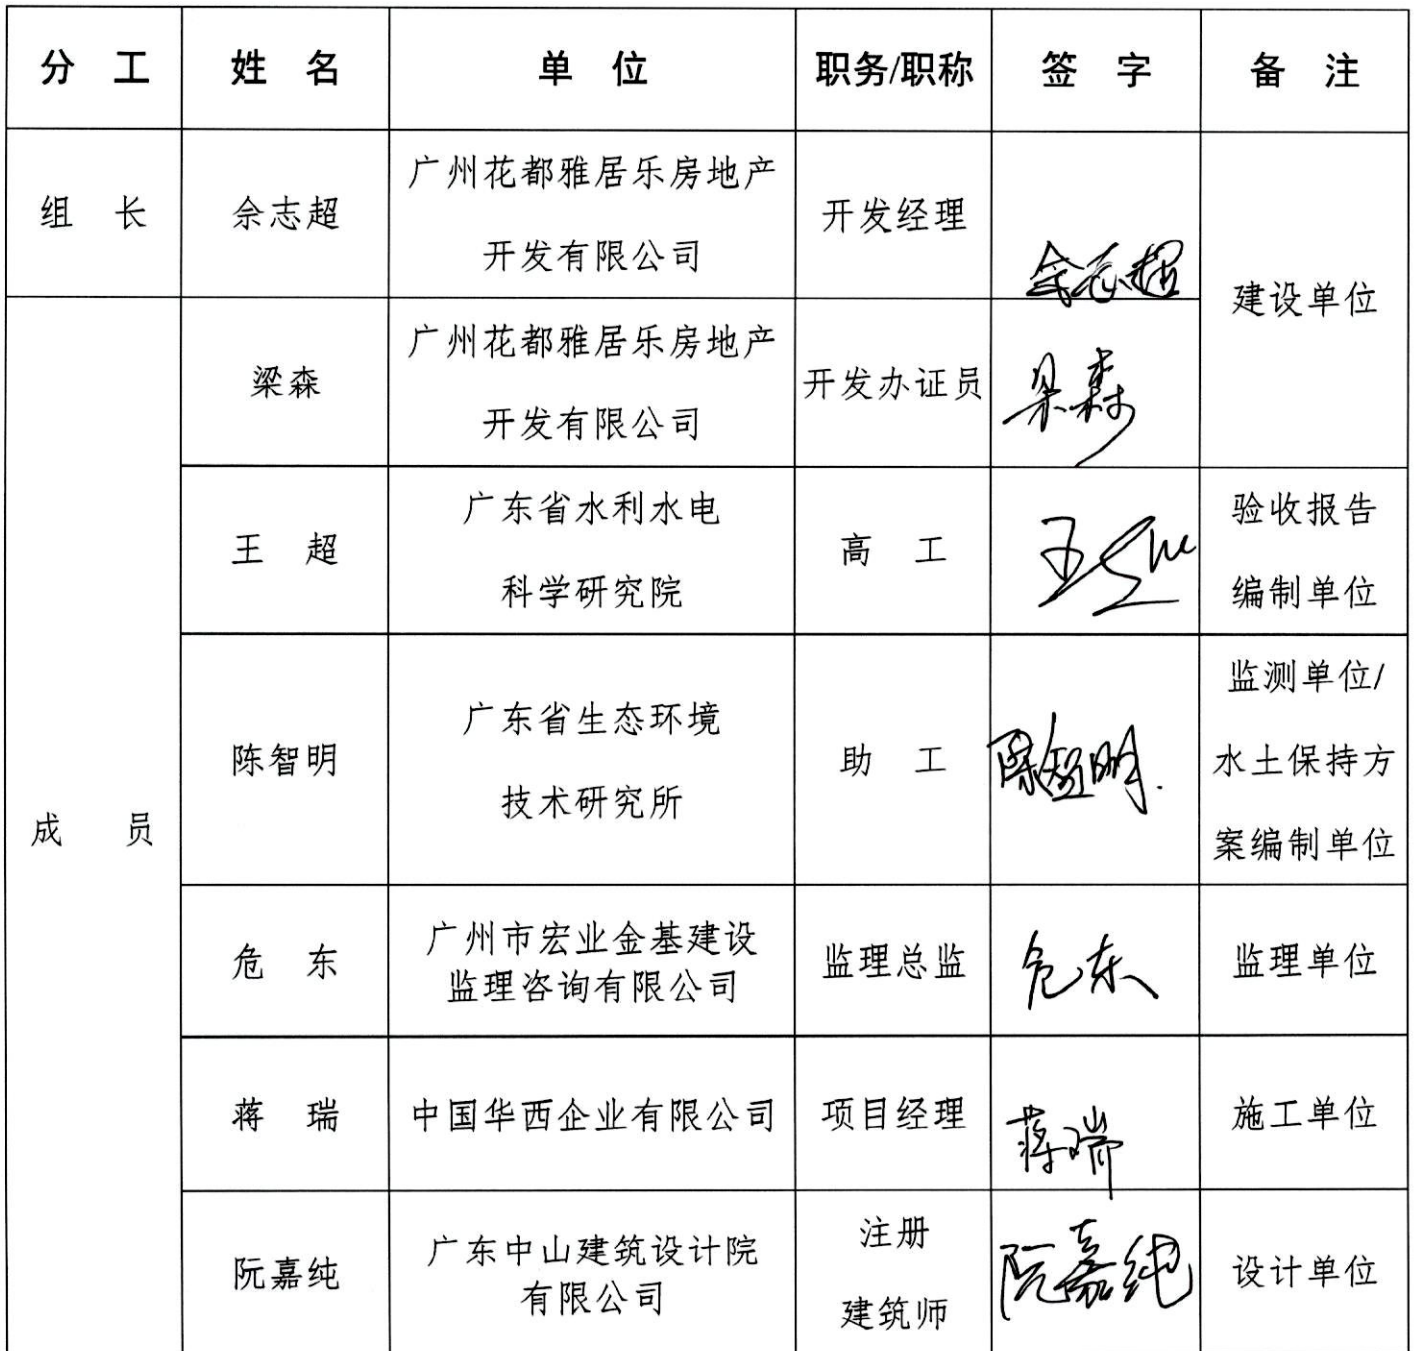 分 工 姓 名 单 位 职务/职称 签 字 备 注
组 长 佘志超 广州花都雅居乐房地产
开发有限公司 开发经理 佘志超 建设单位
成 员 梁森 广州花都雅居乐房地产
开发有限公司 开发办证员 梁森
王 超 广东省水利水电
科学研究院 高 工 王超 验收报告
编制单位
陈智明 广东省生态环境
技术研究所 助 工 陈智明 监测单位/
水土保持方
案编制单位
危 东 广州市宏业金基建设
监理咨询有限公司 监理总监 危东 监理单位
蒋 瑞 中国华西企业有限公司 项目经理 蒋瑞 施工单位
阮嘉纯 广东中山建筑设计院
有限公司 注册
建筑师 阮嘉纯 设计单位